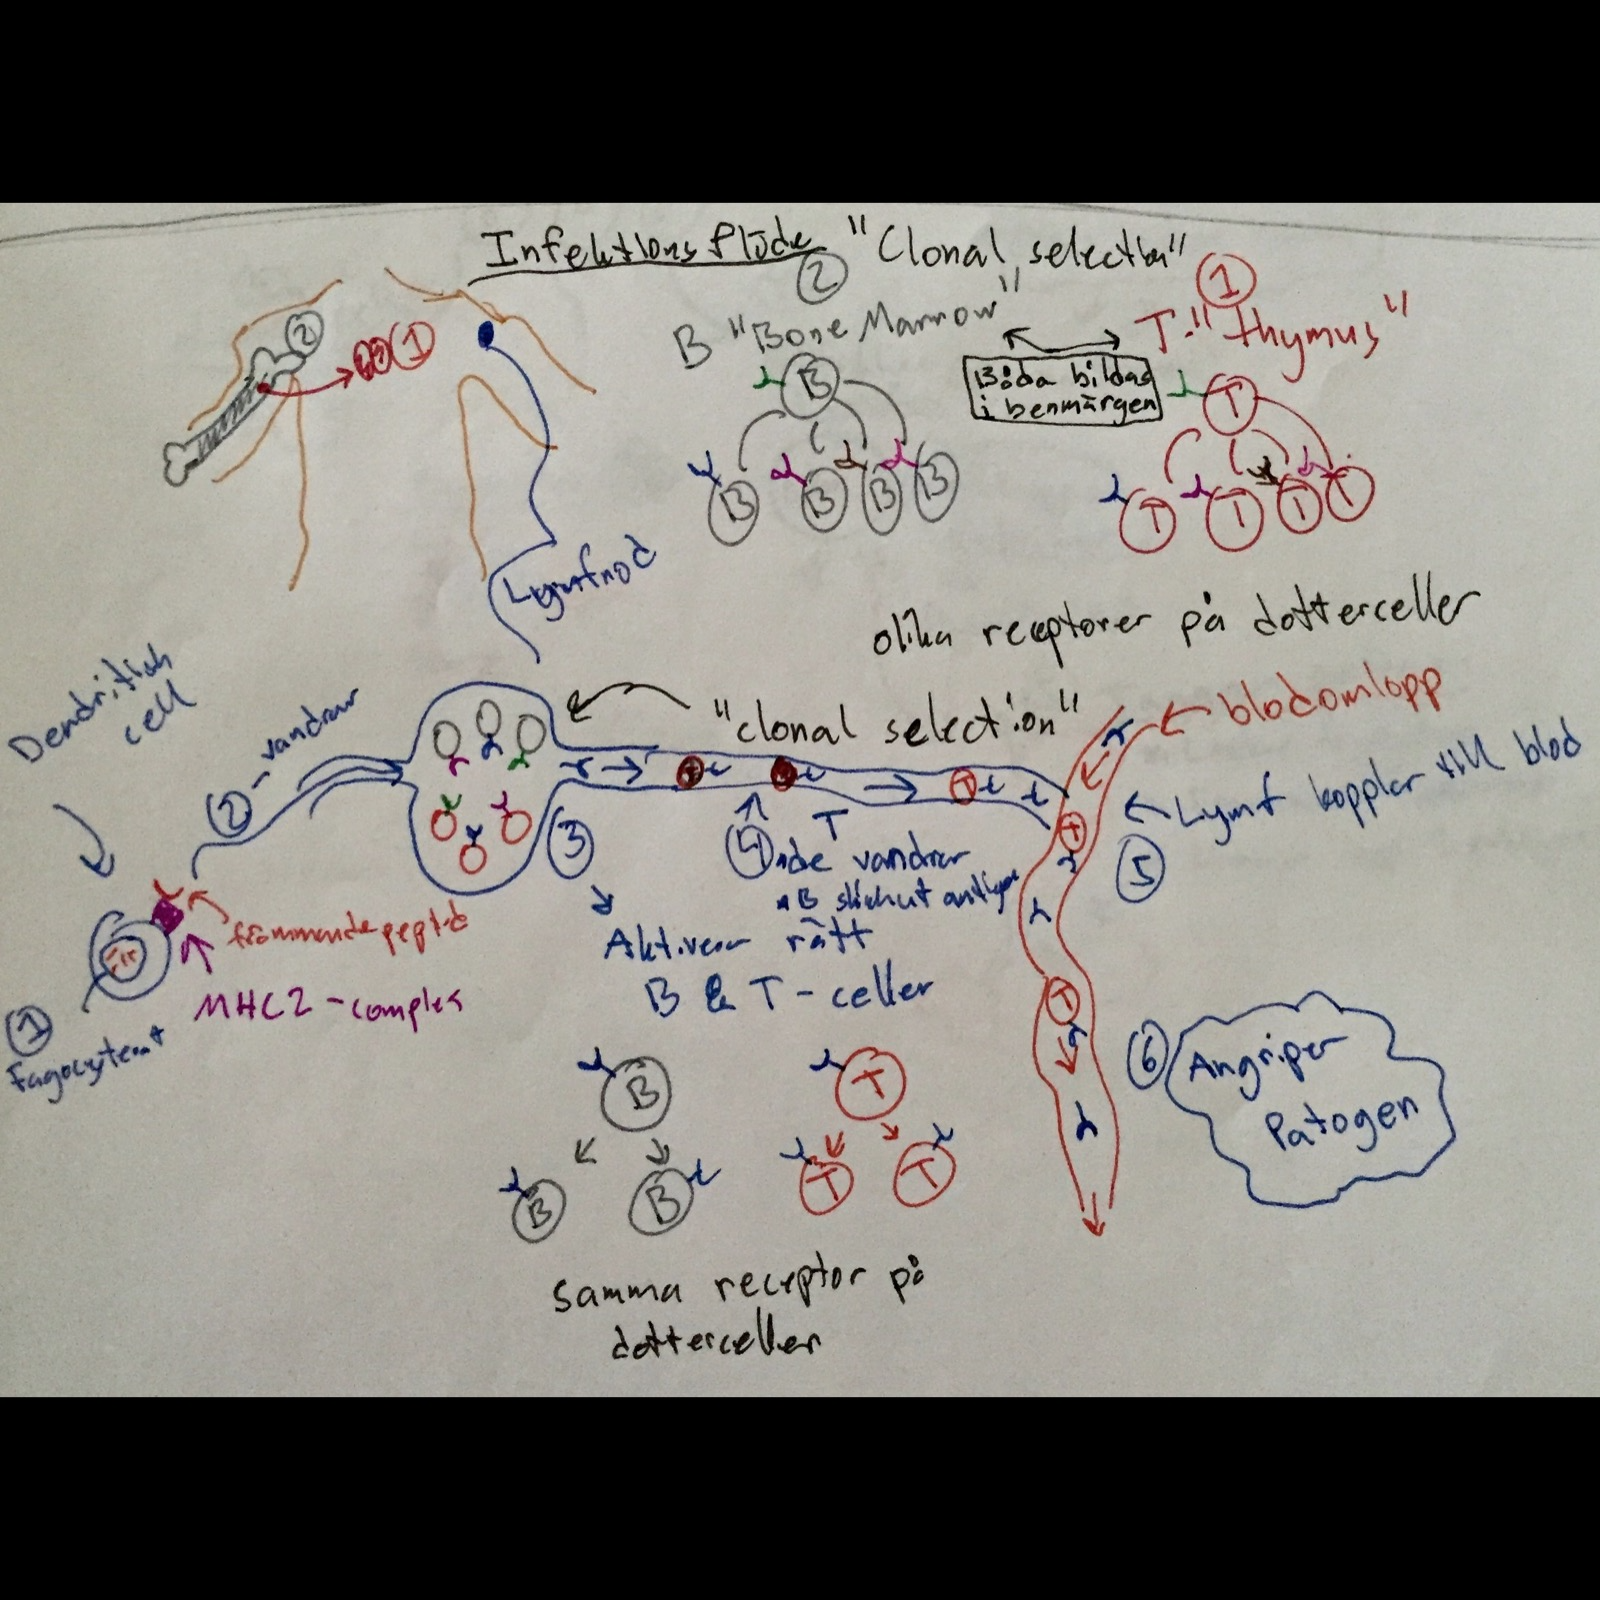 Infektionsflöde "Clonal selection"
2
B "Bone Marrow"
1
T-"thymus"
2
1
Båda bildas
i benmärgen
B
T
B B B B
T T T T
Lymfnod
olika receptorer på dotterceller
Dendritisk
cell
2 - vandrar
"clonal selection"
blodomlopp
Lymf kopplar till blod
5
3
4
T
T
T
vandrar
Aktiverar rätt
B & T - celler
främmande peptid
MHC2 - complex
1
Fagocyterat
T
6 Angriper
Patogen
B
T
B B
T T
Samma receptor på
dotterceller